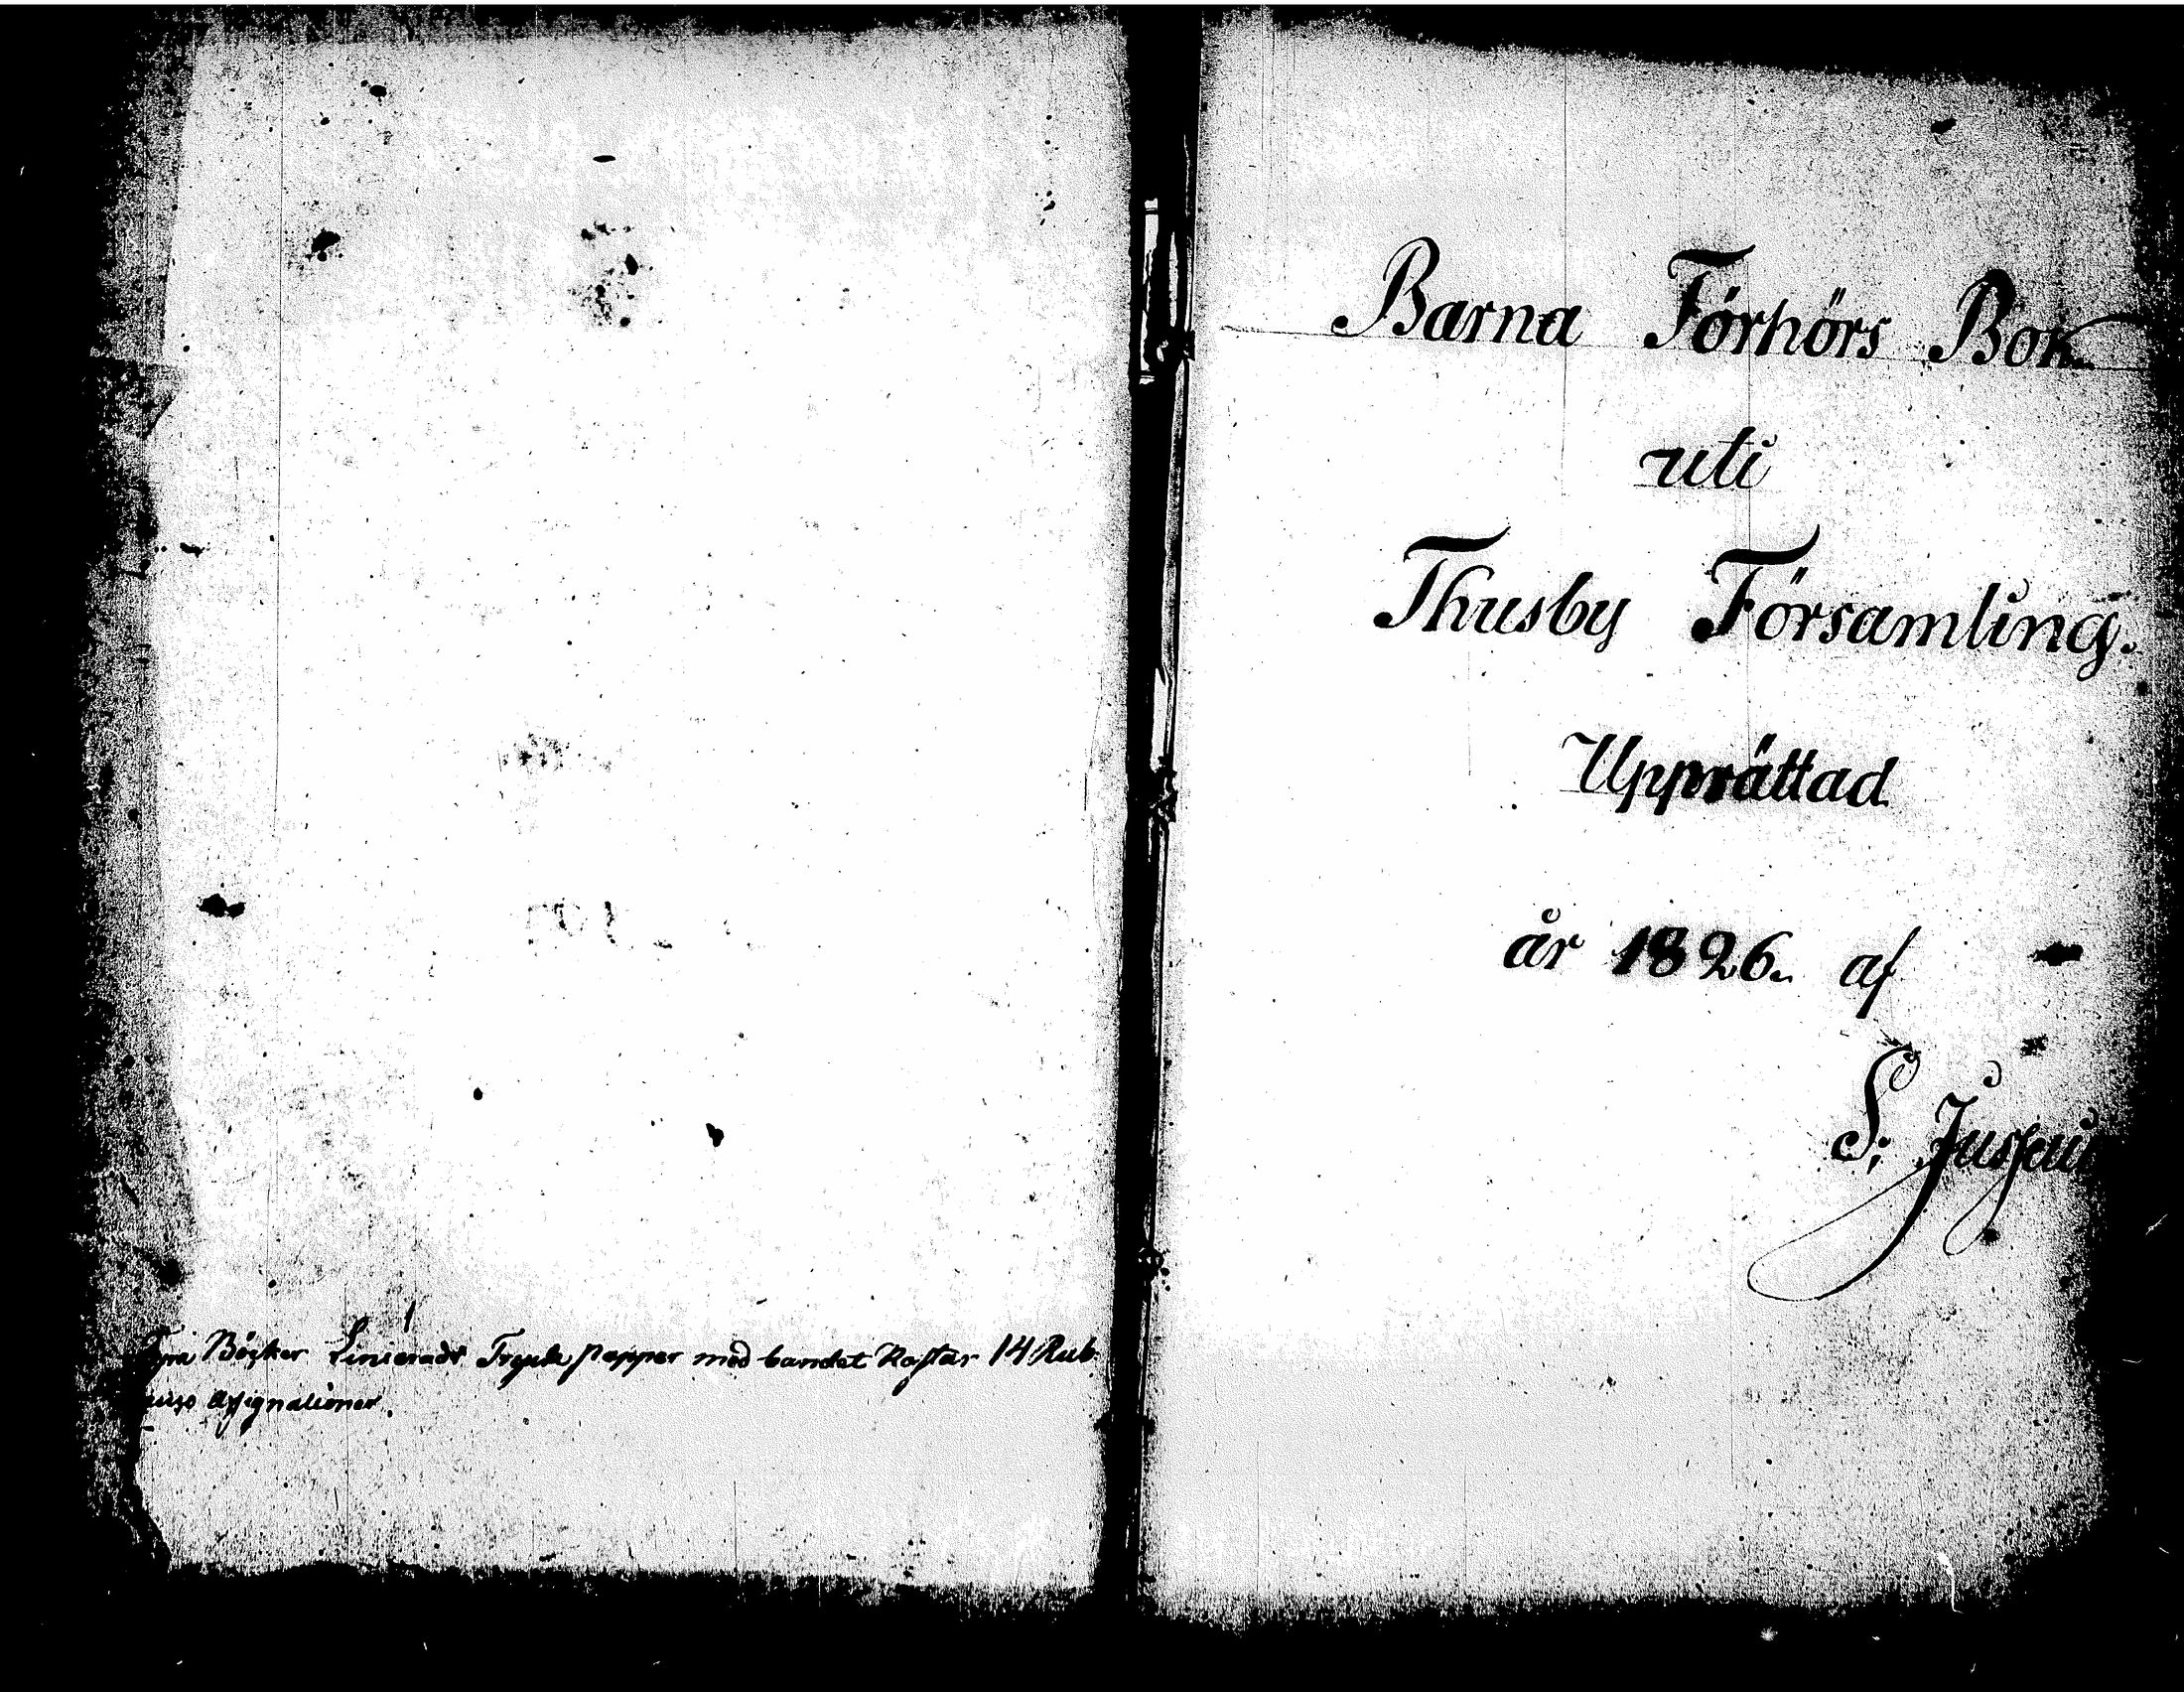 Fyra Böcker Linierade Trycke papper med bandet Kostar 14 Rub.
Assignationer.
Barna Förhörs Bok
uti
Thusby Församling.
Upprättad
år 1826. af
S: